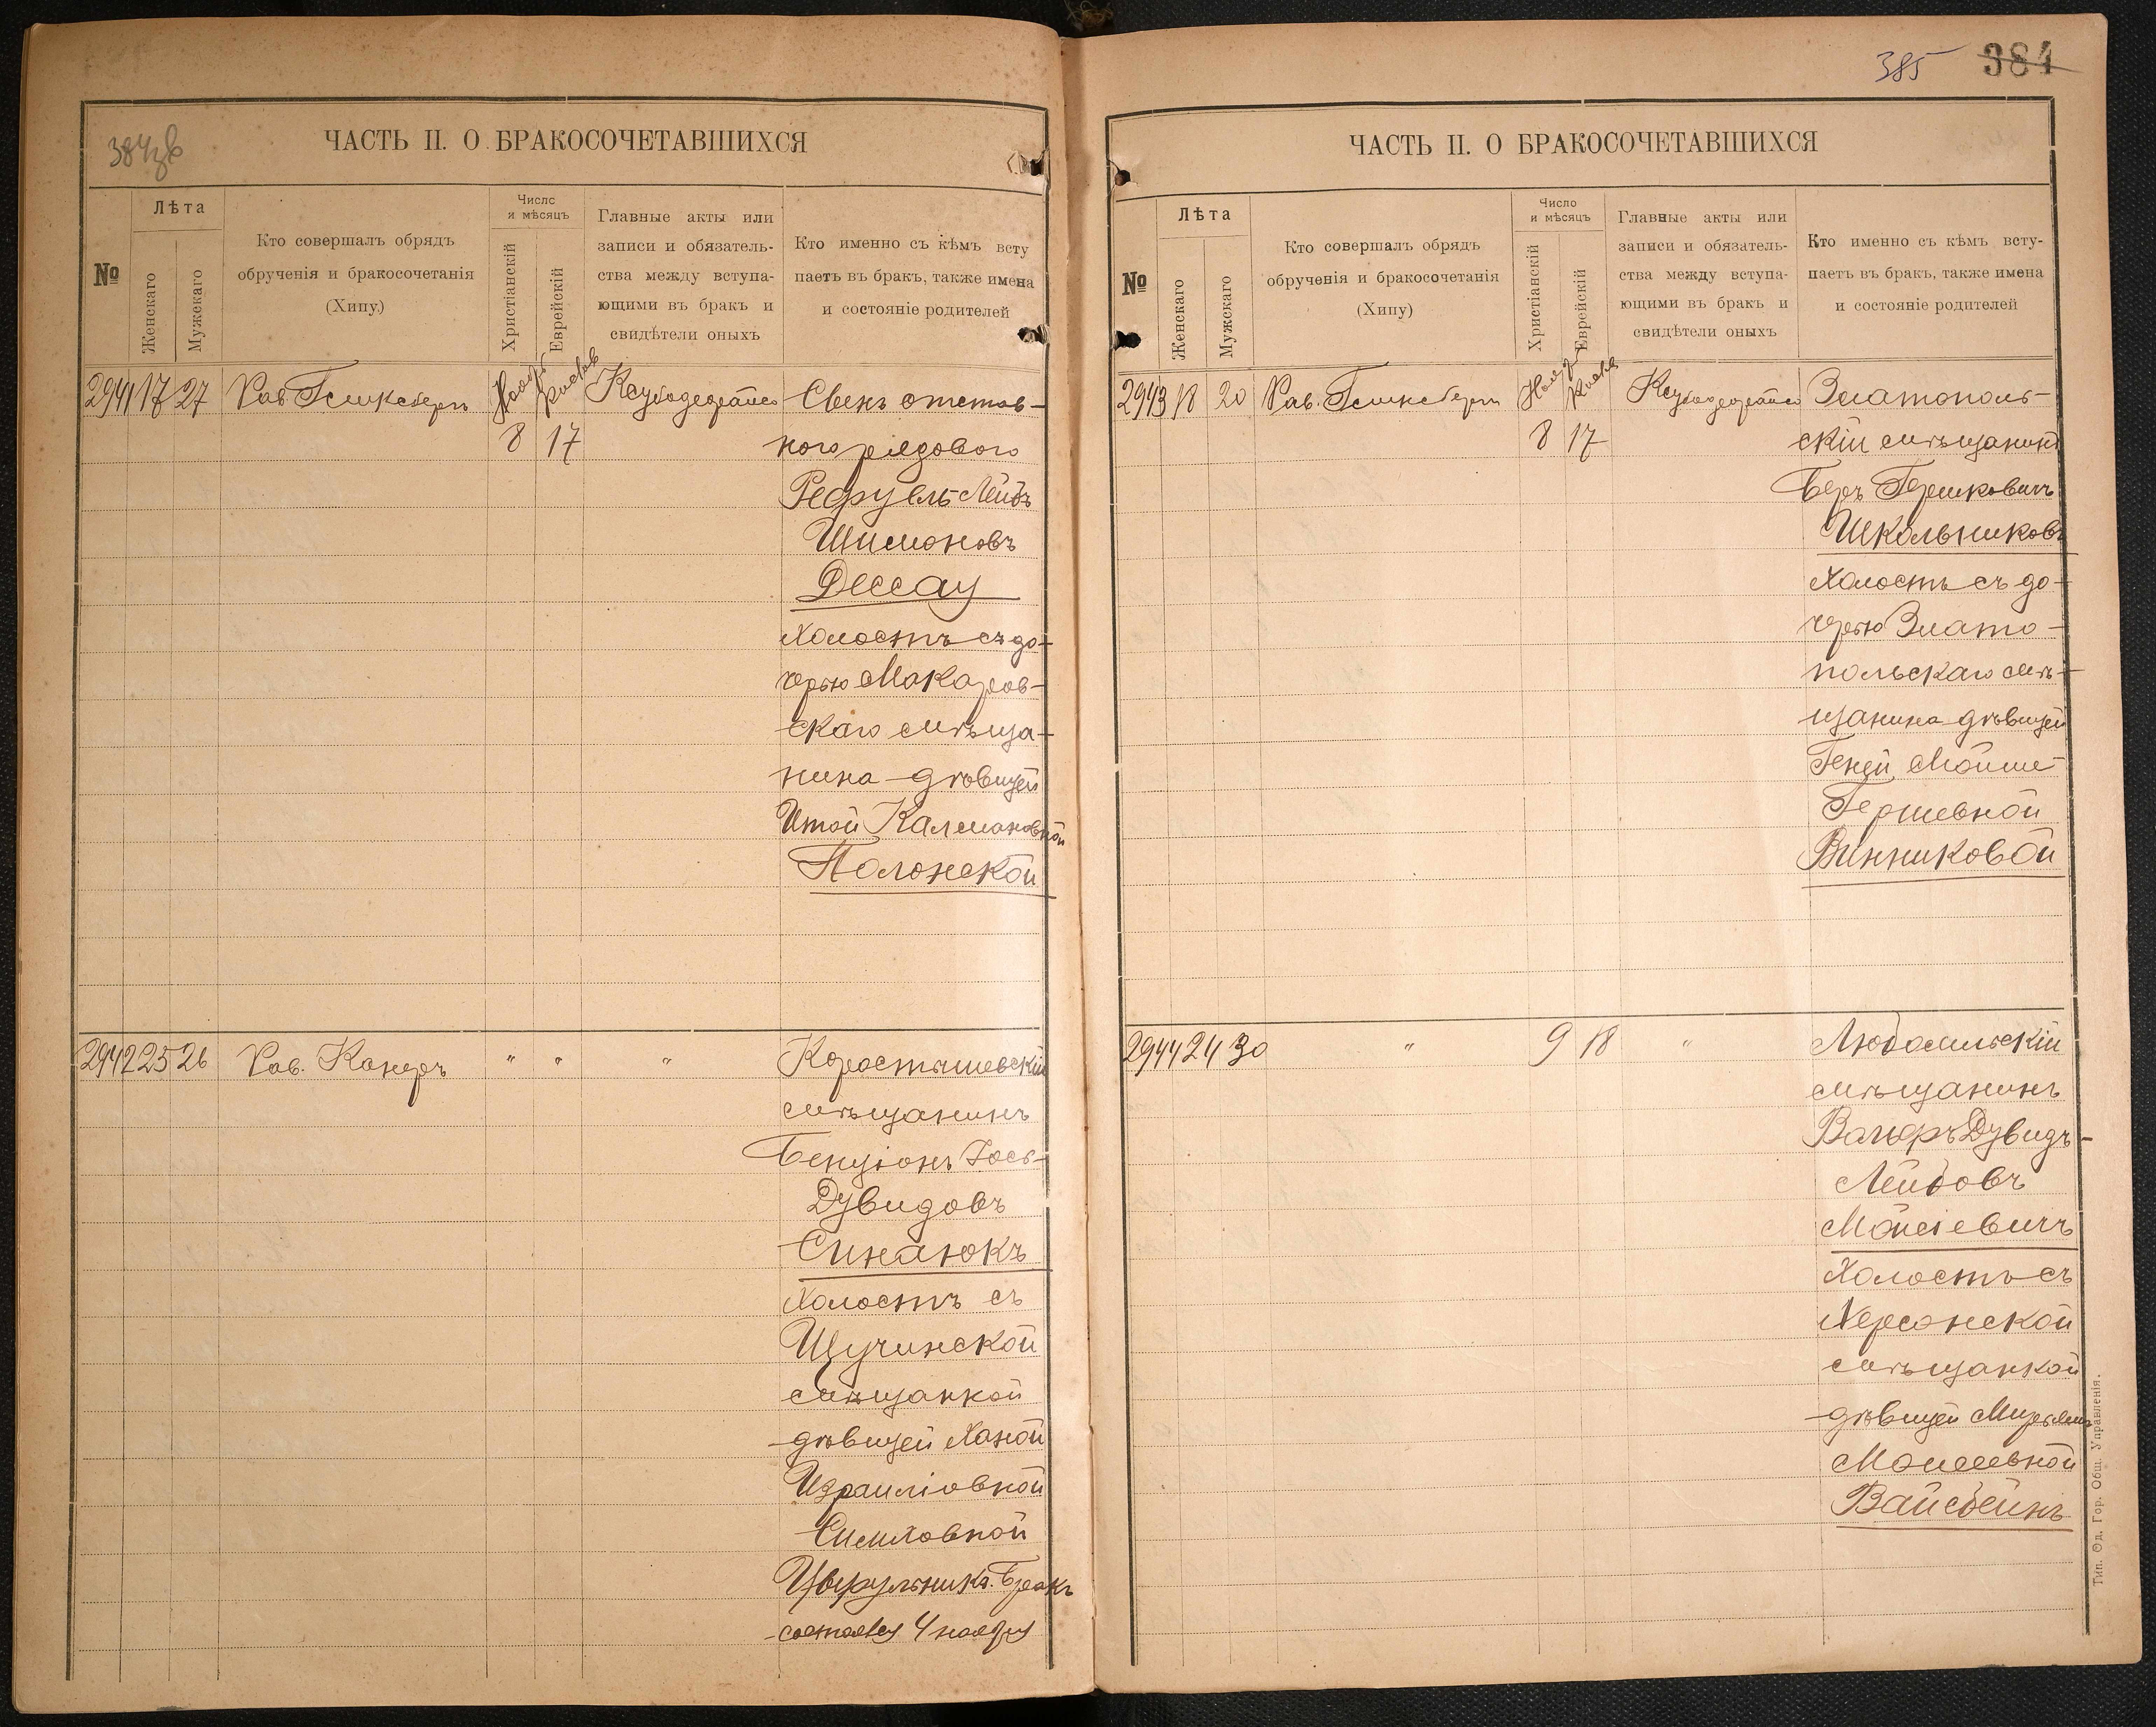 384 зв
ЧАСТЬ II. О БРАКОСОЧЕТАВШИХСЯ
№
Лѣта
Женскаго
Мужескаго
Кто совершалъ обрядъ
обрученія и бракосочетанія
(Хипу.)
Число
и мѣсяцъ
Христіанскій
Еврейскій
Главные акты или
записи и обязатель-
ства между вступа-
ющими въ бракъ и
свидѣтели оныхъ
Кто именно съ кѣмъ всту
паетъ въ бракъ, также имена
и состояніе родителей
2941 17 27 Рав.
8 17
Сынъ отстав-
ного рядового
Лейбъ
Шимоновъ
Дессау
холостъ съ до-
черью Макаров-
скаго мѣща-
нина дѣвицей
Итой Калмановной
Полонской
2942 25 26 Рав. Канеръ " " "
Коростышевскій
мѣщанинъ
Бенціонъ Іось-
Дувидовъ
Синаюкъ
холостъ съ
Щучинской
мѣщанкой
дѣвицей Ханой
Израиліовной
Симховной
Цирульникъ. Бракъ
состоялся 4 ноября
385 384
ЧАСТЬ II. О БРАКОСОЧЕТАВШИХСЯ
№
Лѣта
Женскаго
Мужскаго
Кто совершалъ обрядъ
обрученія и бракосочетанія
(Хипу)
Число
и мѣсяцъ
Христіанскій
Еврейскій
Главные акты или
записи и обязатель-
ства между вступа-
ющими въ бракъ и
свидѣтели оныхъ
Кто именно съ кѣмъ всту-
паетъ въ бракъ, также имена
и состояніе родителей
2943 18 20 Рав.
8 17
Златополь-
скій мѣщанинъ
Беръ Гершковичъ
Школьниковъ
холостъ съ до-
черью Злато-
польскаго мѣ-
щанина дѣвицей
Геней Мойше-
Гершевной
Винниковой
2944 24 30 " 9 18 "
Любомльскій
мѣщанинъ
Дувидъ-
Лейбовъ
Мойсіевичъ
холостъ съ
Херсонской
мѣщанкой
дѣвицей
Моисеевной
Вайсбейнъ
Тип. Од. Гор. Общ. Управленія.